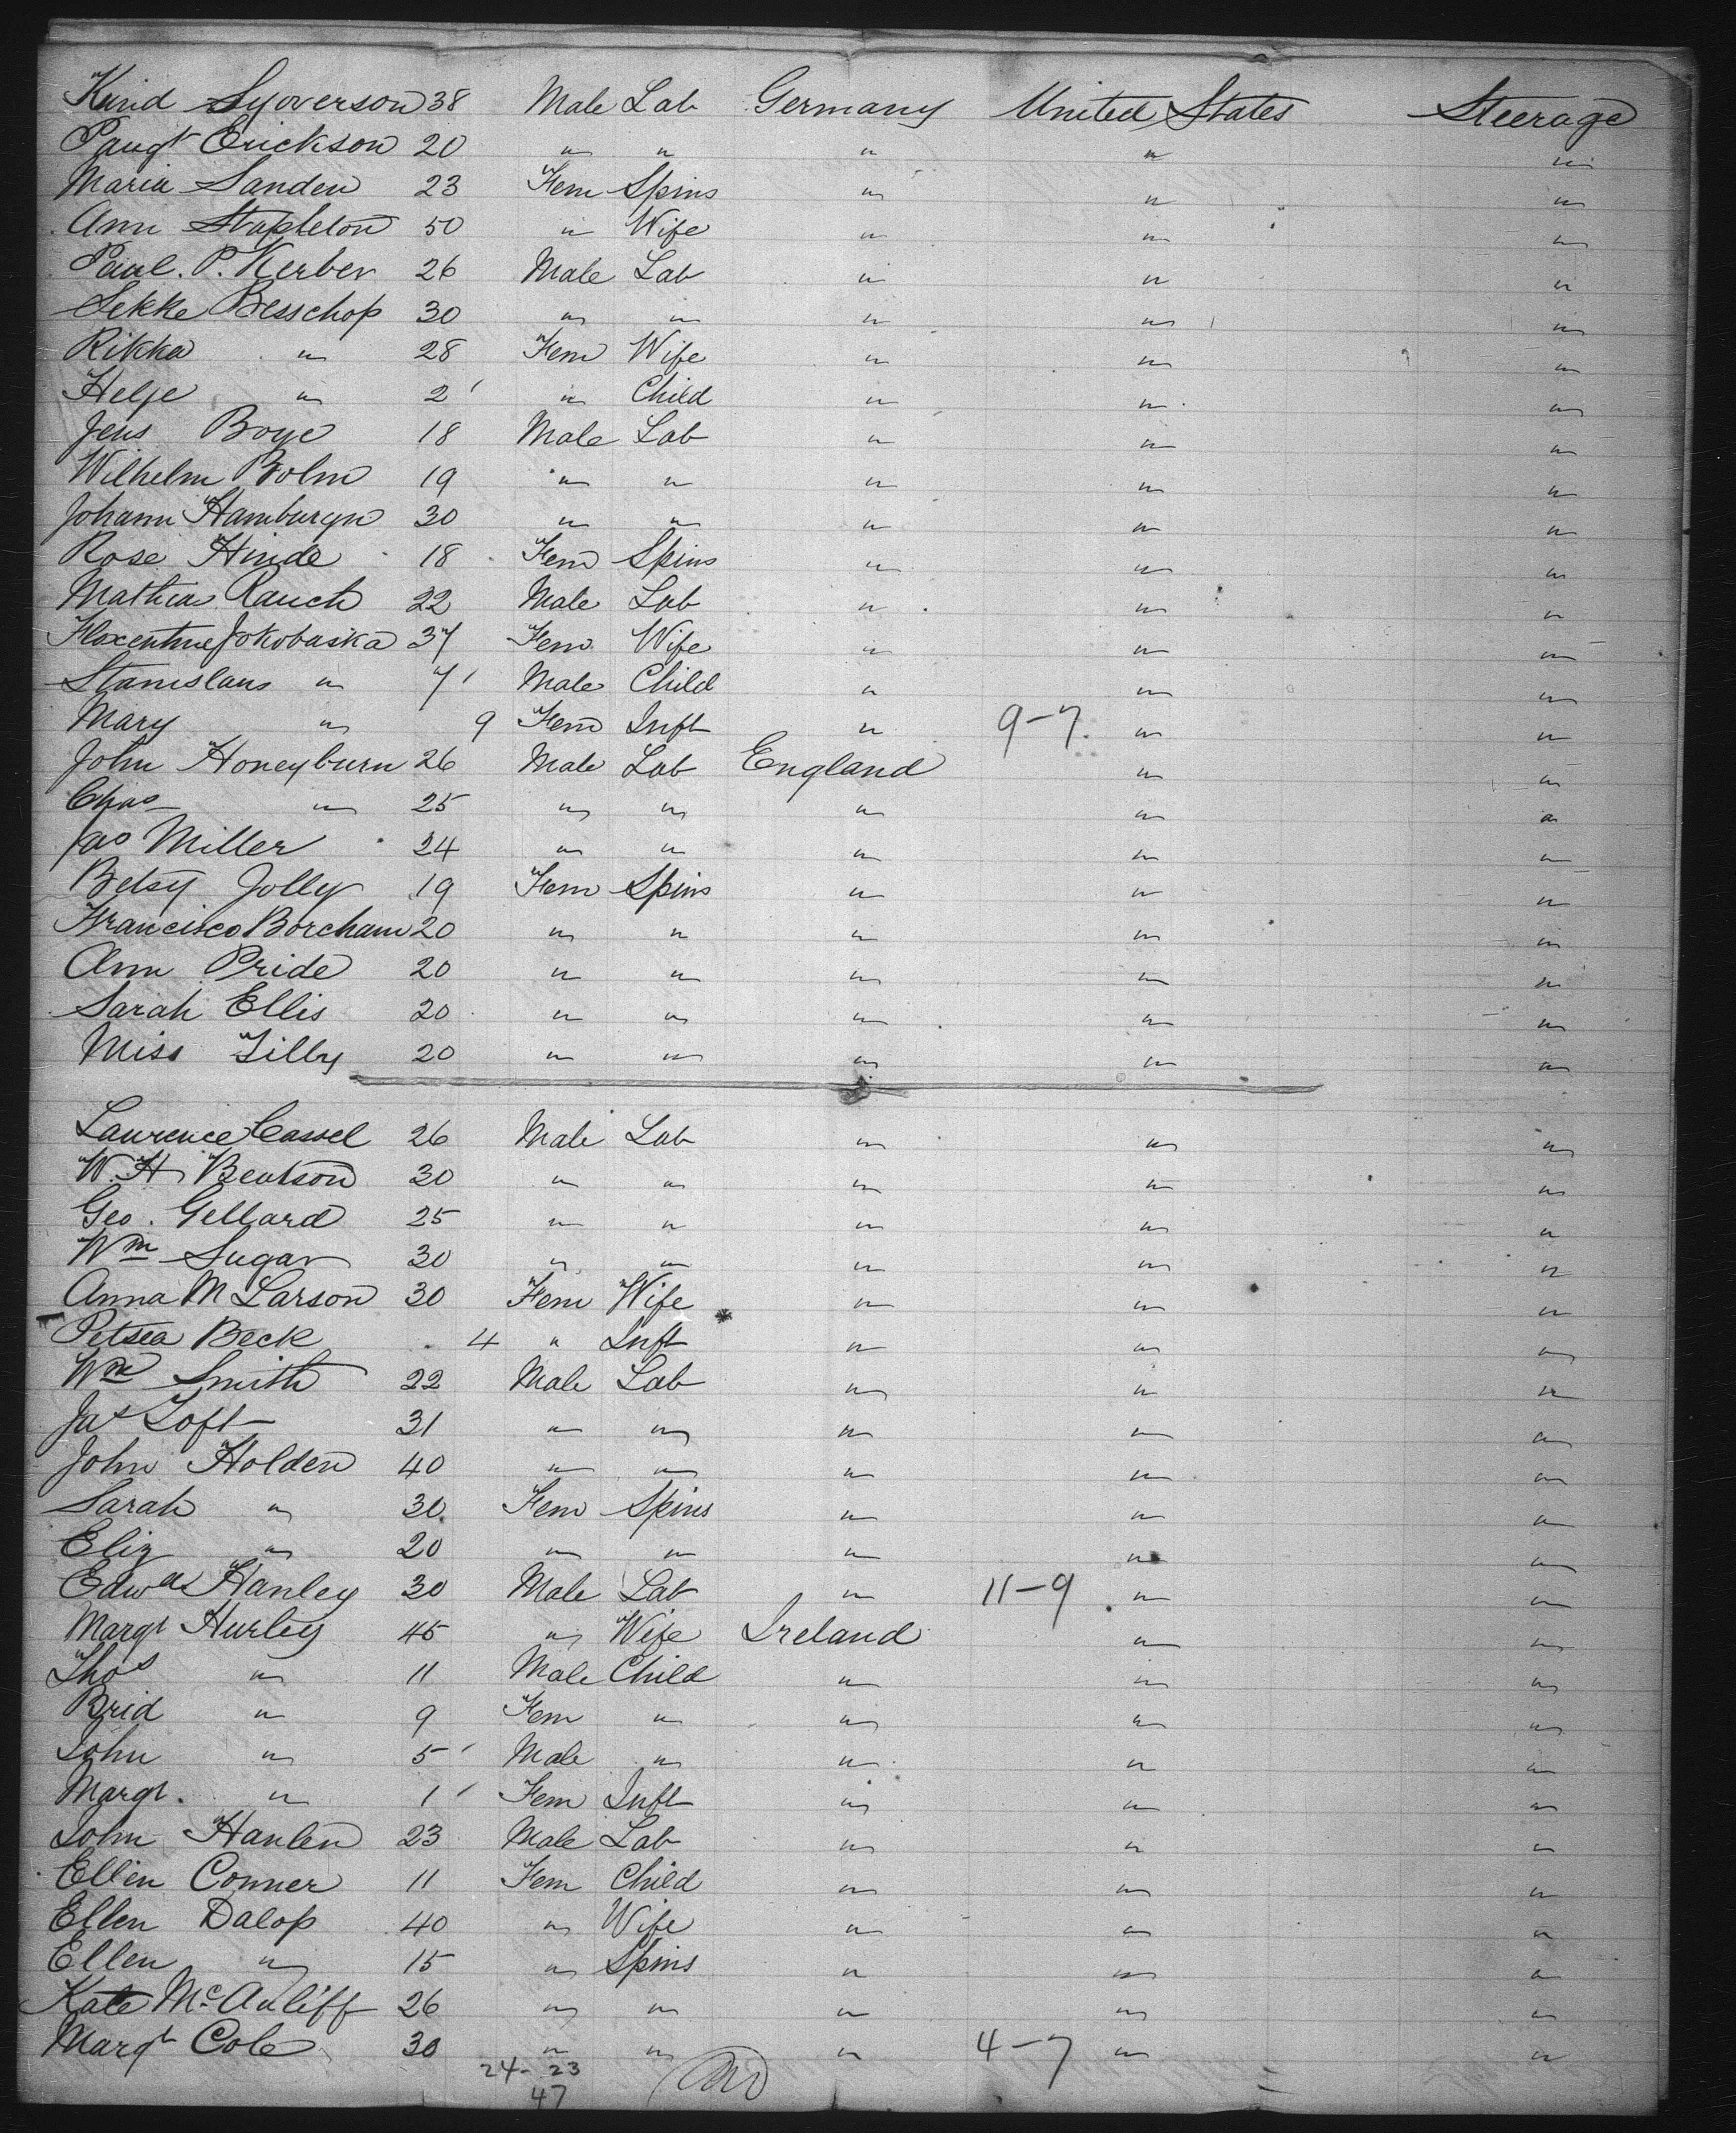 Knud Syoverson 38 Male Lab Germany United States Steerage
Paugt Erickson 20 " " " " "
Maria Sanden 23 Fem Spins " " "
Ann Stapleton 50 " Wife " " "
Paul. P. Kerber 26 Male Lab " " "
Sekke Besschop 30 " " " " "
Rikka " 28 Fem Wife " " "
Helje " 2 " Child " " "
Jens Boye 18 Male Lab " " "
Wilhelm Bolm 19 " " " " "
Johann Hamburgn 30 " " " " "
Rose Hinde 18 Fem Spins " " "
Mathias Rauch 22 Male Lab " " "
Floxentine Jokobaska 37 Fem Wife " " "
Stanislaus " 7 Male Child " " "
Mary " 9 Fem Inft " 9-7. " "
John Honeyburn 26 Male Lab England " "
Chas " 25 " " " " "
Jas Miller 24 " " " " "
Betsy Jolly 19 Fem Spins " " "
Francisco Borcham 20 " " " " "
Ann Pride 20 " " " " "
Sarah Ellis 20 " " " " "
Miss Lilly 20 " " " " "
Laurence Cassel 26 Male Lab " " "
W. H Beatson 30 " " " " "
Geo. Gellard 25 " " " " "
Wm Sugar 30 " " " " "
Anna M Larson 30 Fem Wife " " "
Petsea Beck 4 " Inft " " "
Wm Smith 22 Male Lab " " "
Jas Loft 31 " " " " "
John Holden 40 " " " " "
Sarah " 30 Fem Spins " " "
Eliz " 20 " " " " "
Edwd Hanley 30 Male Lab " 11-9 " "
Margt Hurley 45 " Wife Ireland " "
Thos " 11 Male Child " " "
Brid " 9 Fem " " " "
John " 5 Male " " " "
Margt. " 1 Fem Inft " " "
John Hanlen 23 Male Lab " " "
Ellen Conner 11 Fem Child " " "
Ellen Dalop 40 " Wife " " "
Ellen " 15 " Spins " " "
Kate McAuliff 26 " " " " "
Margt Cole 30 " " " 4-7 " "
24-23
47